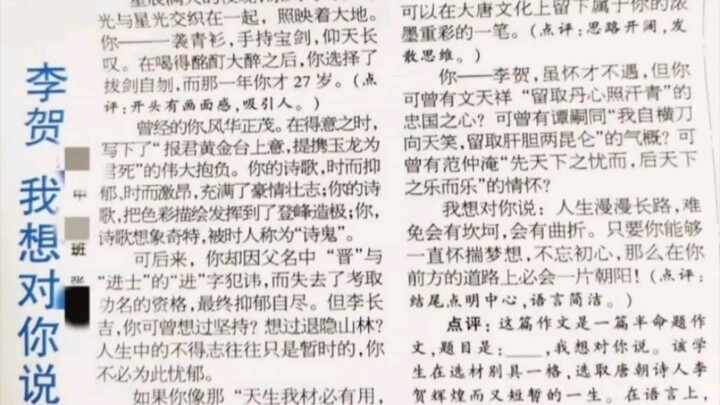 李贺 我想对你说
中
班 张
光与星光交织在一起，照映着大地。
你——一袭青衫，手持宝剑，仰天长
叹。在喝得酩酊大醉之后，你选择了
拔剑自刎，而那一年你才27岁。（点
评：开头有画面感，吸引人。）
曾经的你，风华正茂。在得意之时，
写下了“报君黄金台上意，提携玉龙为
君死”的伟大抱负。你的诗歌，时而抑
郁，时而激昂，充满了豪情壮志；你的诗
歌，把色彩描绘发挥到了登峰造极；你，
诗歌想象奇特，被时人称为“诗鬼”。
可后来，你却因父名中“晋”与
“进士”的“进”字犯讳，而失去了考取
功名的资格，最终抑郁自尽。但李长
吉，你可曾想过坚持？想过退隐山林？
人生中的不得志往往只是暂时的，你
不必为此忧郁。
如果你像那“天生我材必有用，
可以在大唐文化上留下属于你的浓
墨重彩的一笔。（点评：思路开阔，发
散思维。）
你——李贺，虽怀才不遇，但你
可曾有文天祥“留取丹心照汗青”的
忠国之心？可曾有谭嗣同“我自横刀
向天笑，留取肝胆两昆仑”的气概？可
曾有范仲淹“先天下之忧而，后天下
之乐而乐”的情怀？
我想对你说：人生漫漫长路，难
免会有坎坷，会有曲折。只要你能够
一直怀揣梦想，不忘初心，那么在你
前方的道路上必会一片朝阳！（点评：
结尾点明中心，语言简洁。）
点评：这篇作文是一篇半命题作
文，题目是：____，我想对你说。该学
生在选材别具一格，选取唐朝诗人李
贺辉煌而又短暂的一生。在语言上，